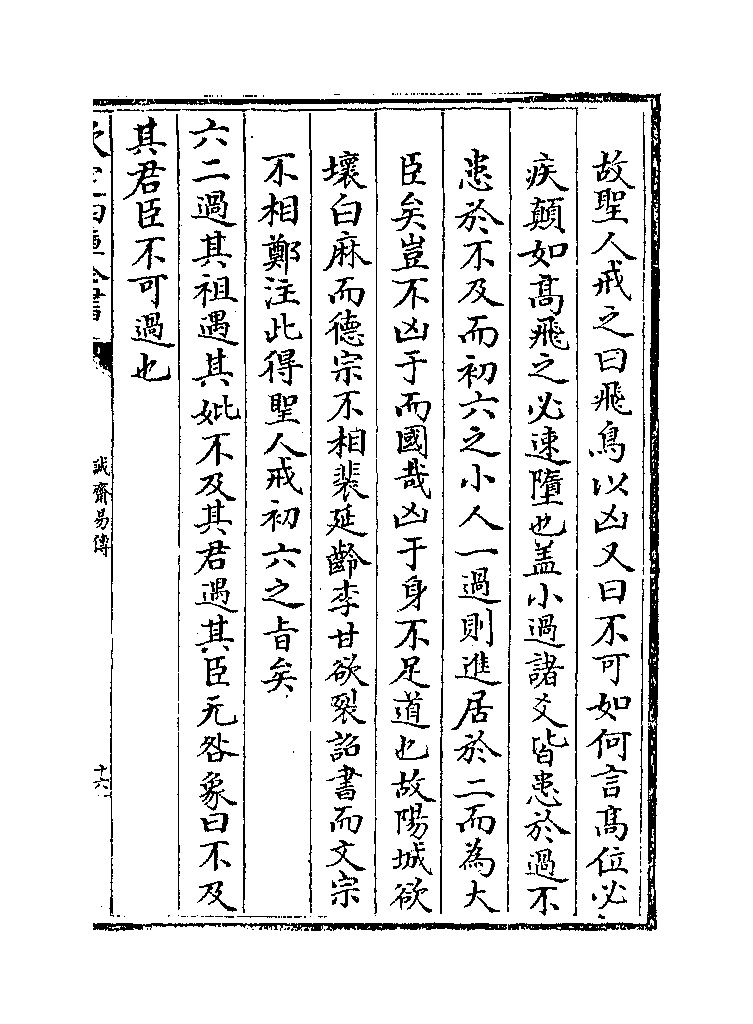 故聖人戒之曰飛鳥以凶又曰不可如何言髙位必
疾顛如髙飛之必速墮也盖小過諸爻皆患於過不
患於不及而初六之小人一過則進居於二而為大
臣矣豈不凶于而國哉凶于身不足道也故陽城欲
壞白麻而德宗不相裴延齡李甘欲裂詔書而文宗
不相鄭注此得聖人戒初六之旨矣
六二過其祖遇其妣不及其君遇其臣无咎象曰不及
其君臣不可過也
誠齋易傳
十六